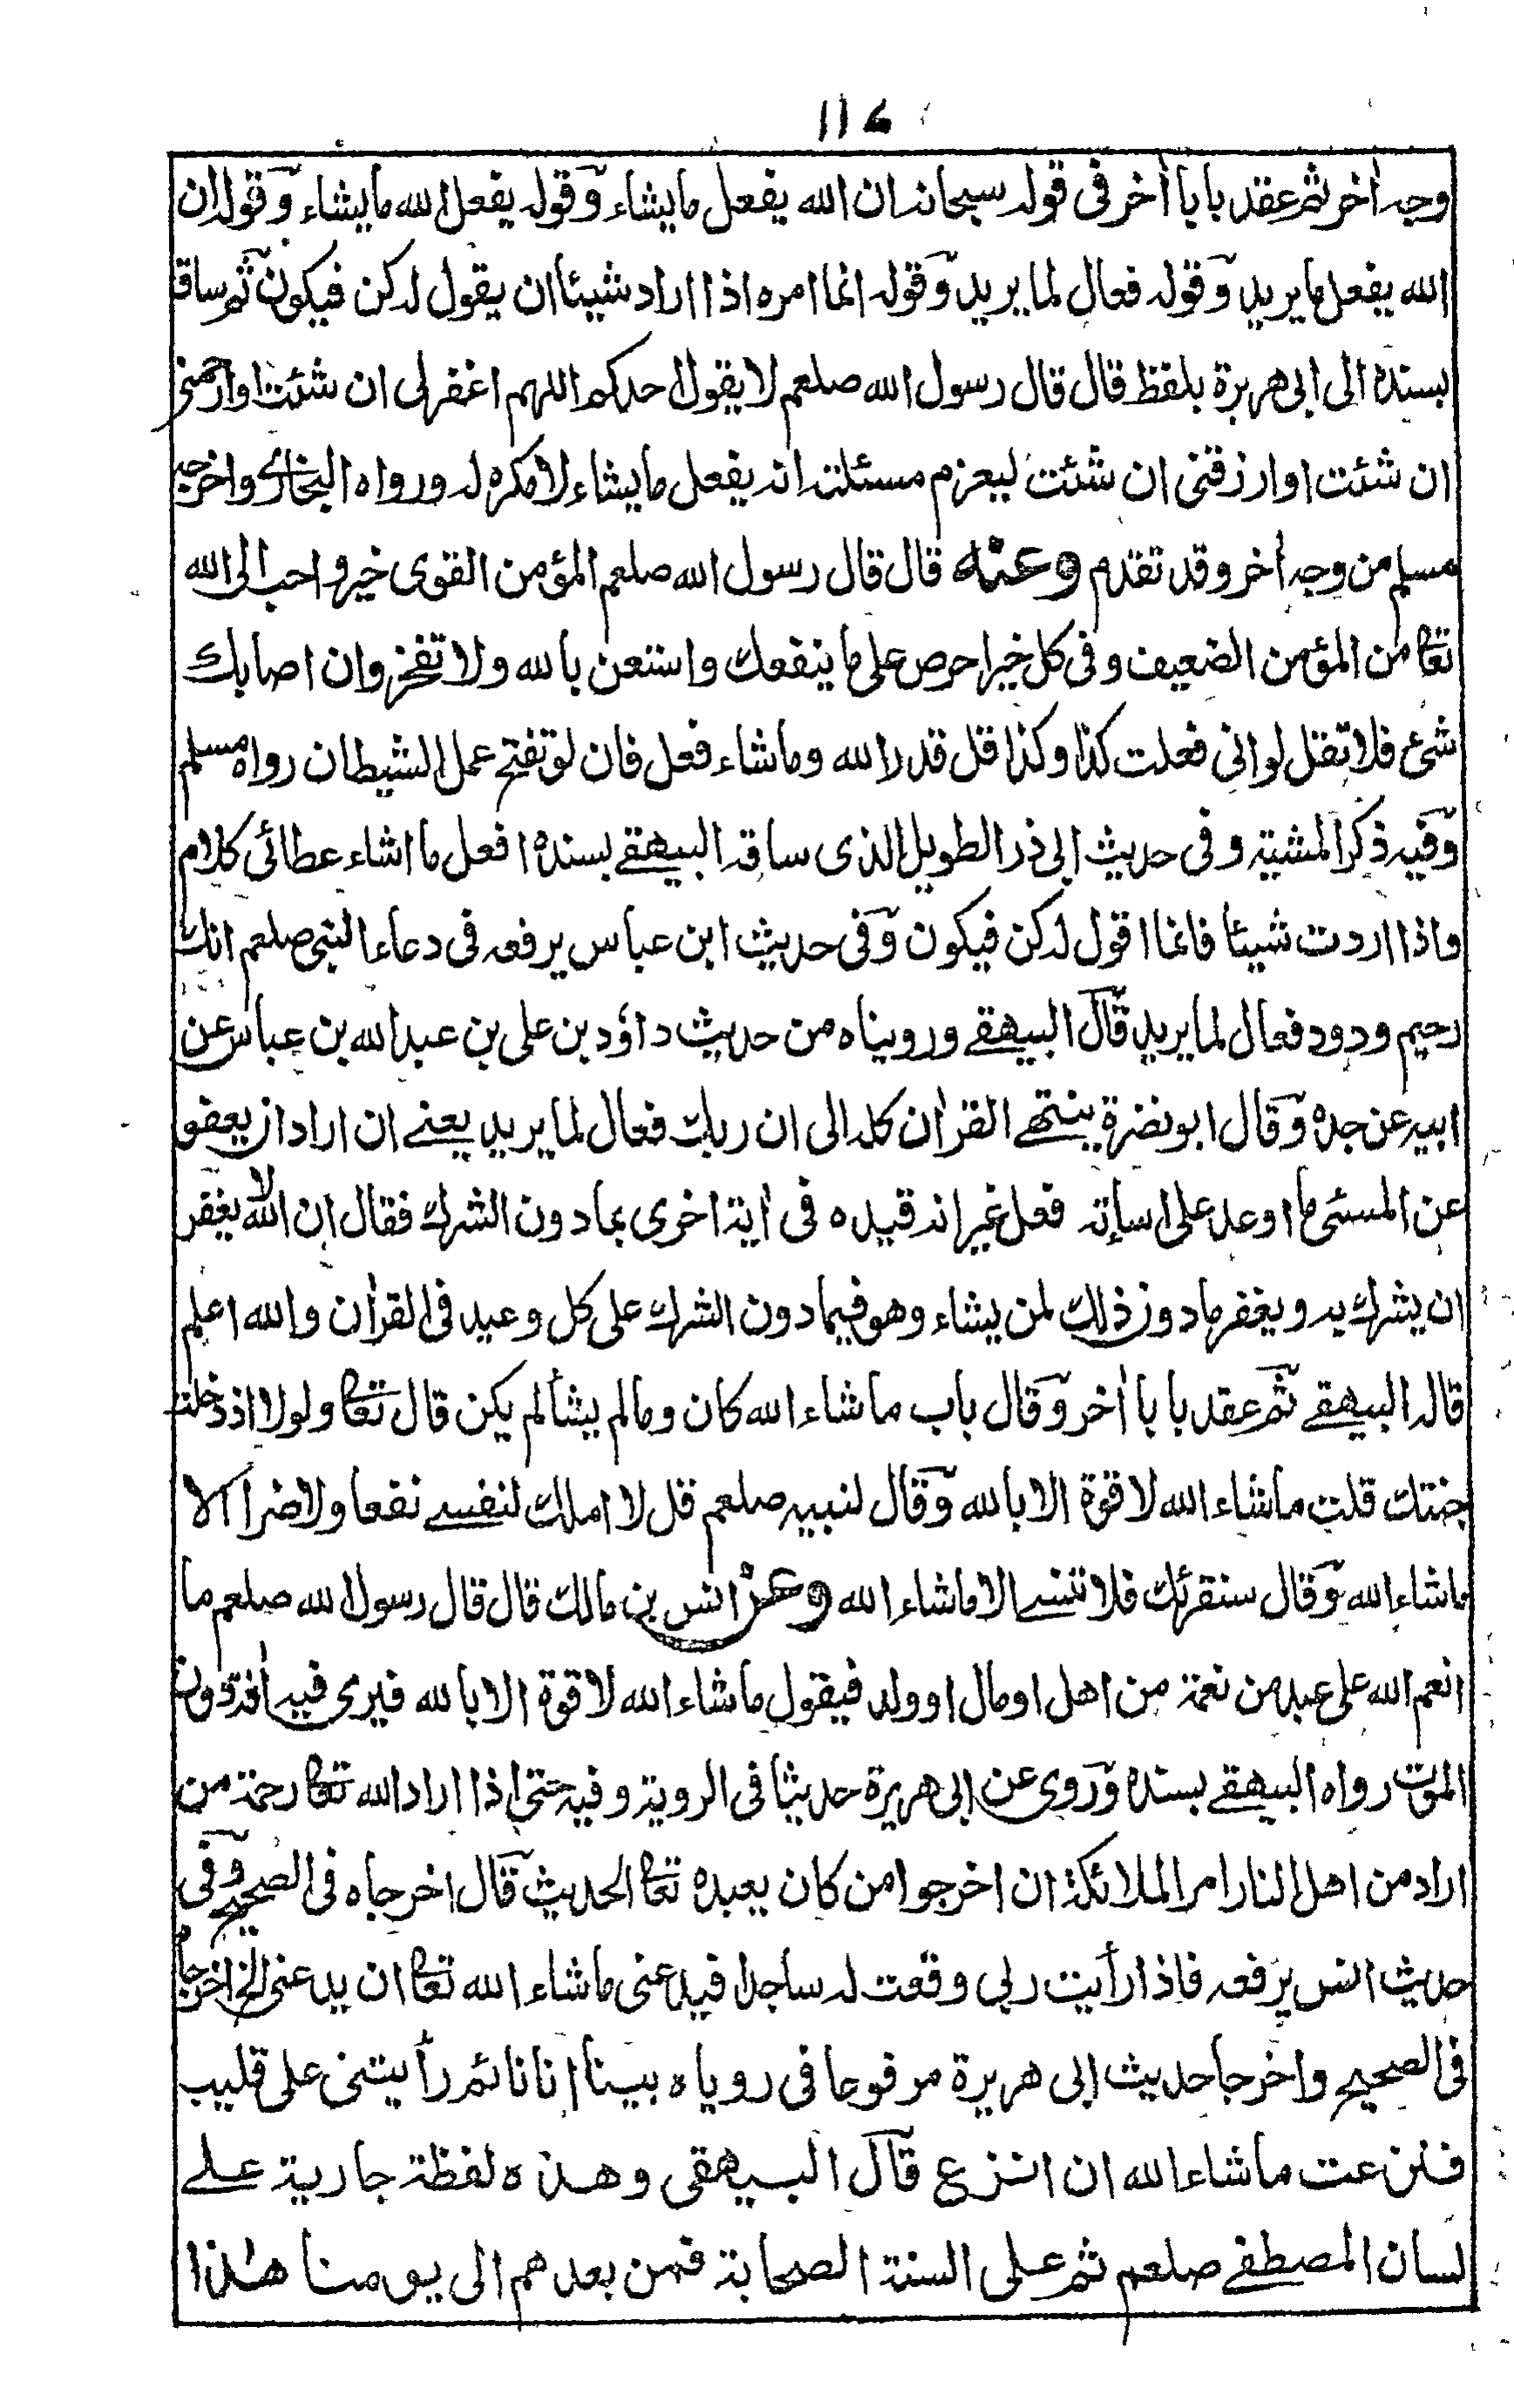 ١١٦
وجه اٰخر ثم عقد بابا اٰخر فى قوله سبحانه ان الله يفعل ما يشاء وقوله يفعل الله ما يشاء وقوله ان
الله يفعل ما يريد وقوله فعال لما يريد وقوله انما امره اذا اراد شيئا ان يقول له كن فيكون ثم ساق
بسنده الى ابى هريرة بلفظ قال قال رسول الله صلعم لا يقول احدكم اللهم اغفر لى ان شئت او ارحمنى
ان شئت او ارزقنى ان شئت ليعزم مسئلته انه يفعل ما يشاء لا مكره له ورواه البخارى واخرجه
مسلم من وجه اٰخر وقد تقدم وعنه قال قال رسول الله صلعم المؤمن القوى خير واحب الى الله
تعا من المؤمن الضعيف وفى كل خير احرص على ما ينفعك واستعن بالله ولا تفخر وان اصابك
شئ فلا تقل لو انى فعلت كذا وكذا قل قدر الله وما شاء فعل فان لو تفتح عمل الشيطان رواه مسلم
وفيه ذكر المشية وفى حديث ابى ذر الطويل الذى ساقه البيهقے بسنده افعل ما اشاء عطائى كلام
واذا اردت شيئا فانما اقول له كن فيكون وفى حديث ابن عباس يرفعه فى دعاء النبى صلعم انك
رحيم ودود فعال لما يريد قال البيهقے ورويناه من حديث داؤد بن على بن عبد الله بن عباس عن
ابيه عن جده وقال ابو نضرة ينتهے القراٰن كله الى ان ربك فعال لما يريد يعنے ان اراد ان يعفو
عن المسئى ما اوعد على اسأته فعل غير انه قيده فى اٰية اخرى بما دون الشرك فقال ان الله لا يغفر
ان يشرك به ويغفر ما دون ذلك لمن يشاء وهو فيما دون الشرك على كل وعيد فى القراٰن والله اعلم
قاله البيهقے ثم عقد بابا اٰخر وقال باب ما شاء الله كان وما لم يشأ لم يكن قال تعا ولولا اذ دخلت
جنتك قلت ما شاء الله لا قوة الا بالله وقال لنبيه صلعم قل لا املك لنفسے نفعا ولا ضرا الا
ما شاء الله وقال سنقرئك فلا تنسے الا ما شاء الله وعن انس بن مالك قال قال رسول الله صلعم ما
انعم الله على عبد من نعمة من اهل او مال او ولد فيقول ما شاء الله لا قوة الا بالله فيرى فيه اٰفة دون
الموت رواه البيهقے بسنده وروى عن ابى هريرة حديثا فى الروية وفيه حتى اذا اراد الله تعا رحمة من
اراد من اهل النار امر الملائكة ان اخرجوا من كان يعبده تعا الحديث قال اخرجاه فى الصحيح وفى
حديث انس يرفعه فاذا رأيت ربى وقعت له ساجدا فيدعنى ما شاء الله تعا ان يدعنى الخ اخرجاه
فى الصحيح واخرجا حديث ابى هريرة مرفوعا فى روياه بينا انا نائم رأيتنى على قليب
فنزعت ما شاء الله ان انزع قال البيهقى وهذه لفظة جارية علے
لسان المصطفے صلعم ثم على السنة الصحابة فمن بعدهم الى يومنا هٰذا